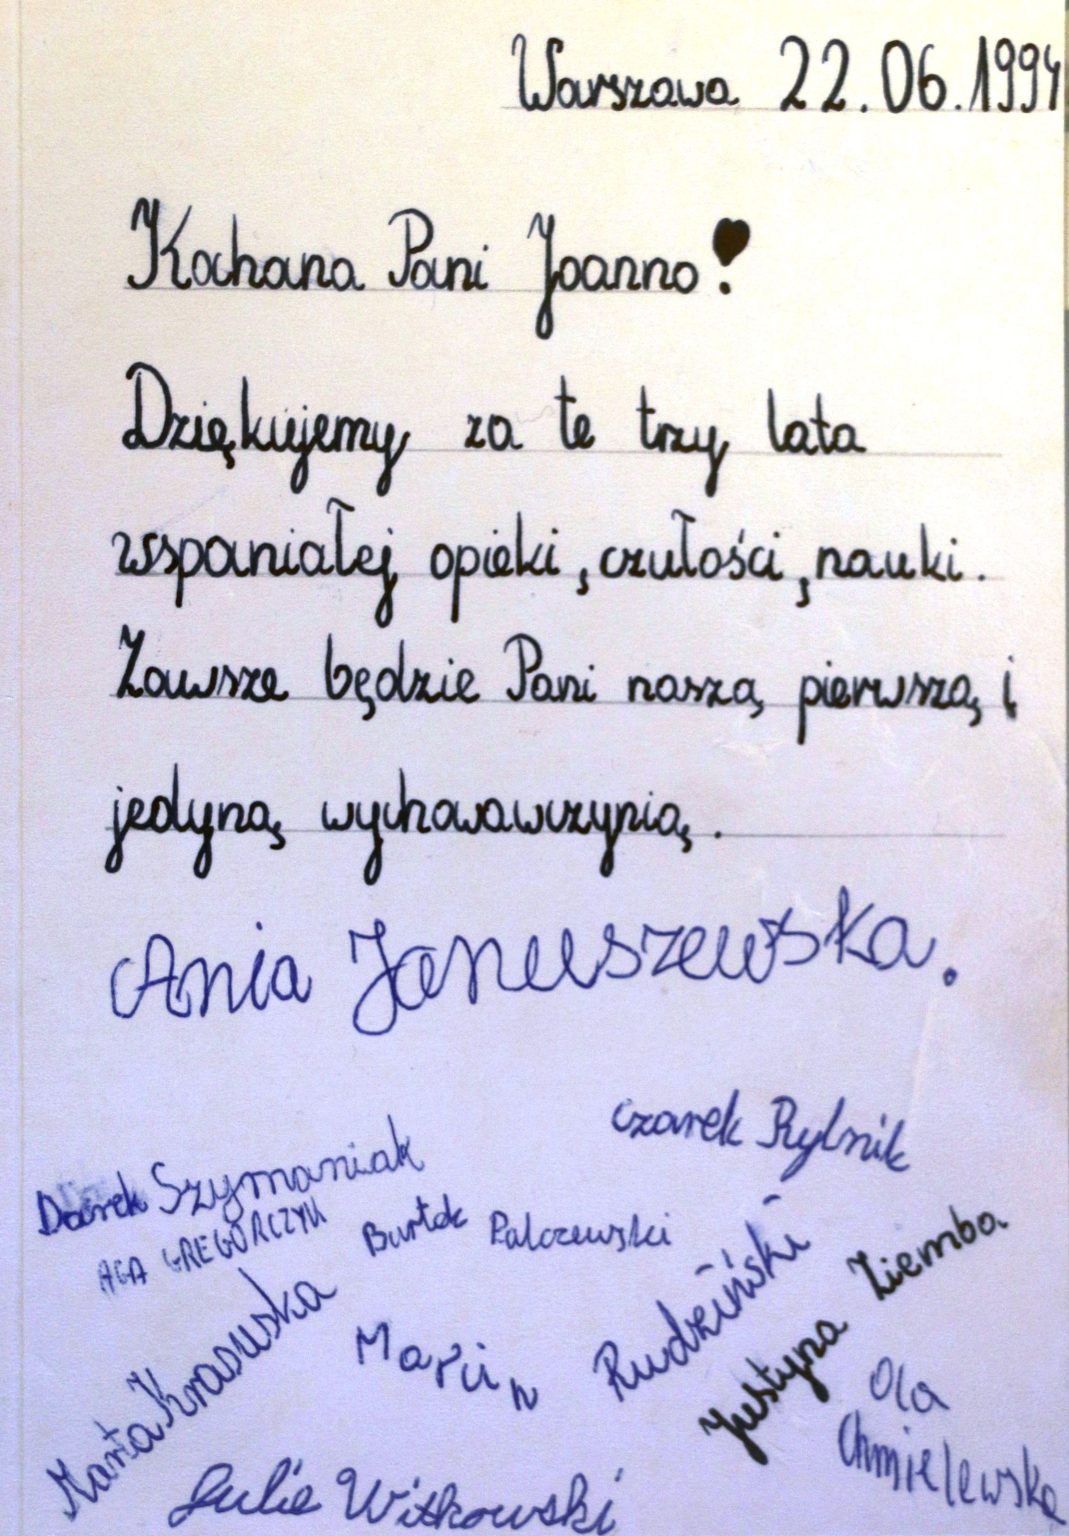 Warszawa 22.06.1994
Kochana Pani Joanno!
Dziękujemy za te trzy lata
wspaniałej opieki, czułości, nauki.
Zawsze będzie Pani naszą pierwszą i
jedyną wychowawczynią.
Ania Januszewska.
Czarek Rylnik
Darek Szymaniak
AGA GREGORCZYK
Bartek Palczewski
Justyna Ziemba
Marta Krasuska
Rudziński
Ola
Chmielewska
Witkowski